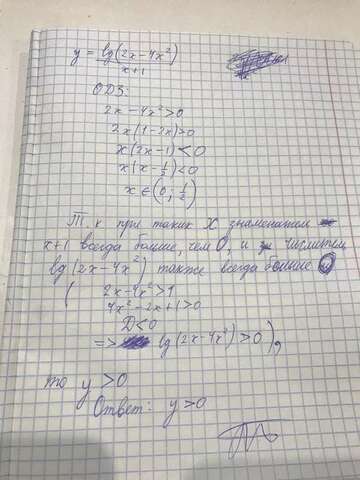 y = lg(2x-4x²)/x+1
ОДЗ:
2x-4x²>0
2x(1-2x)>0
x(2x-1)<0
x(x-1/2)<0
x∈(0; 1/2)
Т.к при таких X знаменатель
x+1 всегда больше, чем 0, и числитель
lg(2x-4x²) также всегда больше 0
( 2x-4x²>1
4x²-2x+1>0
D<0
=> lg(2x-4x²)>0),
то y>0
Ответ: y>0